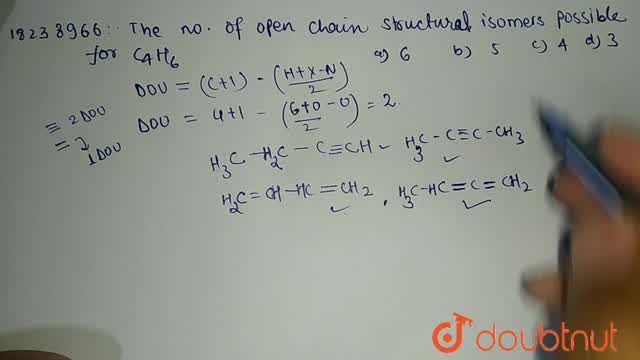 18238966:. The no. of open chain structural isomers possible
for C4H6 a) 6 b) 5 c) 4 d) 3
DOU = (C+1) - (H+X-N/2)
≡ 2DOU
DOU = 4+1 - (6+0-0/2) = 2.
= 1DOU
H3C - H2C - C≡CH - H3C - C≡C - CH3
H2C = CH - HC = CH2 , H3C - HC = C = CH2
doubtnut